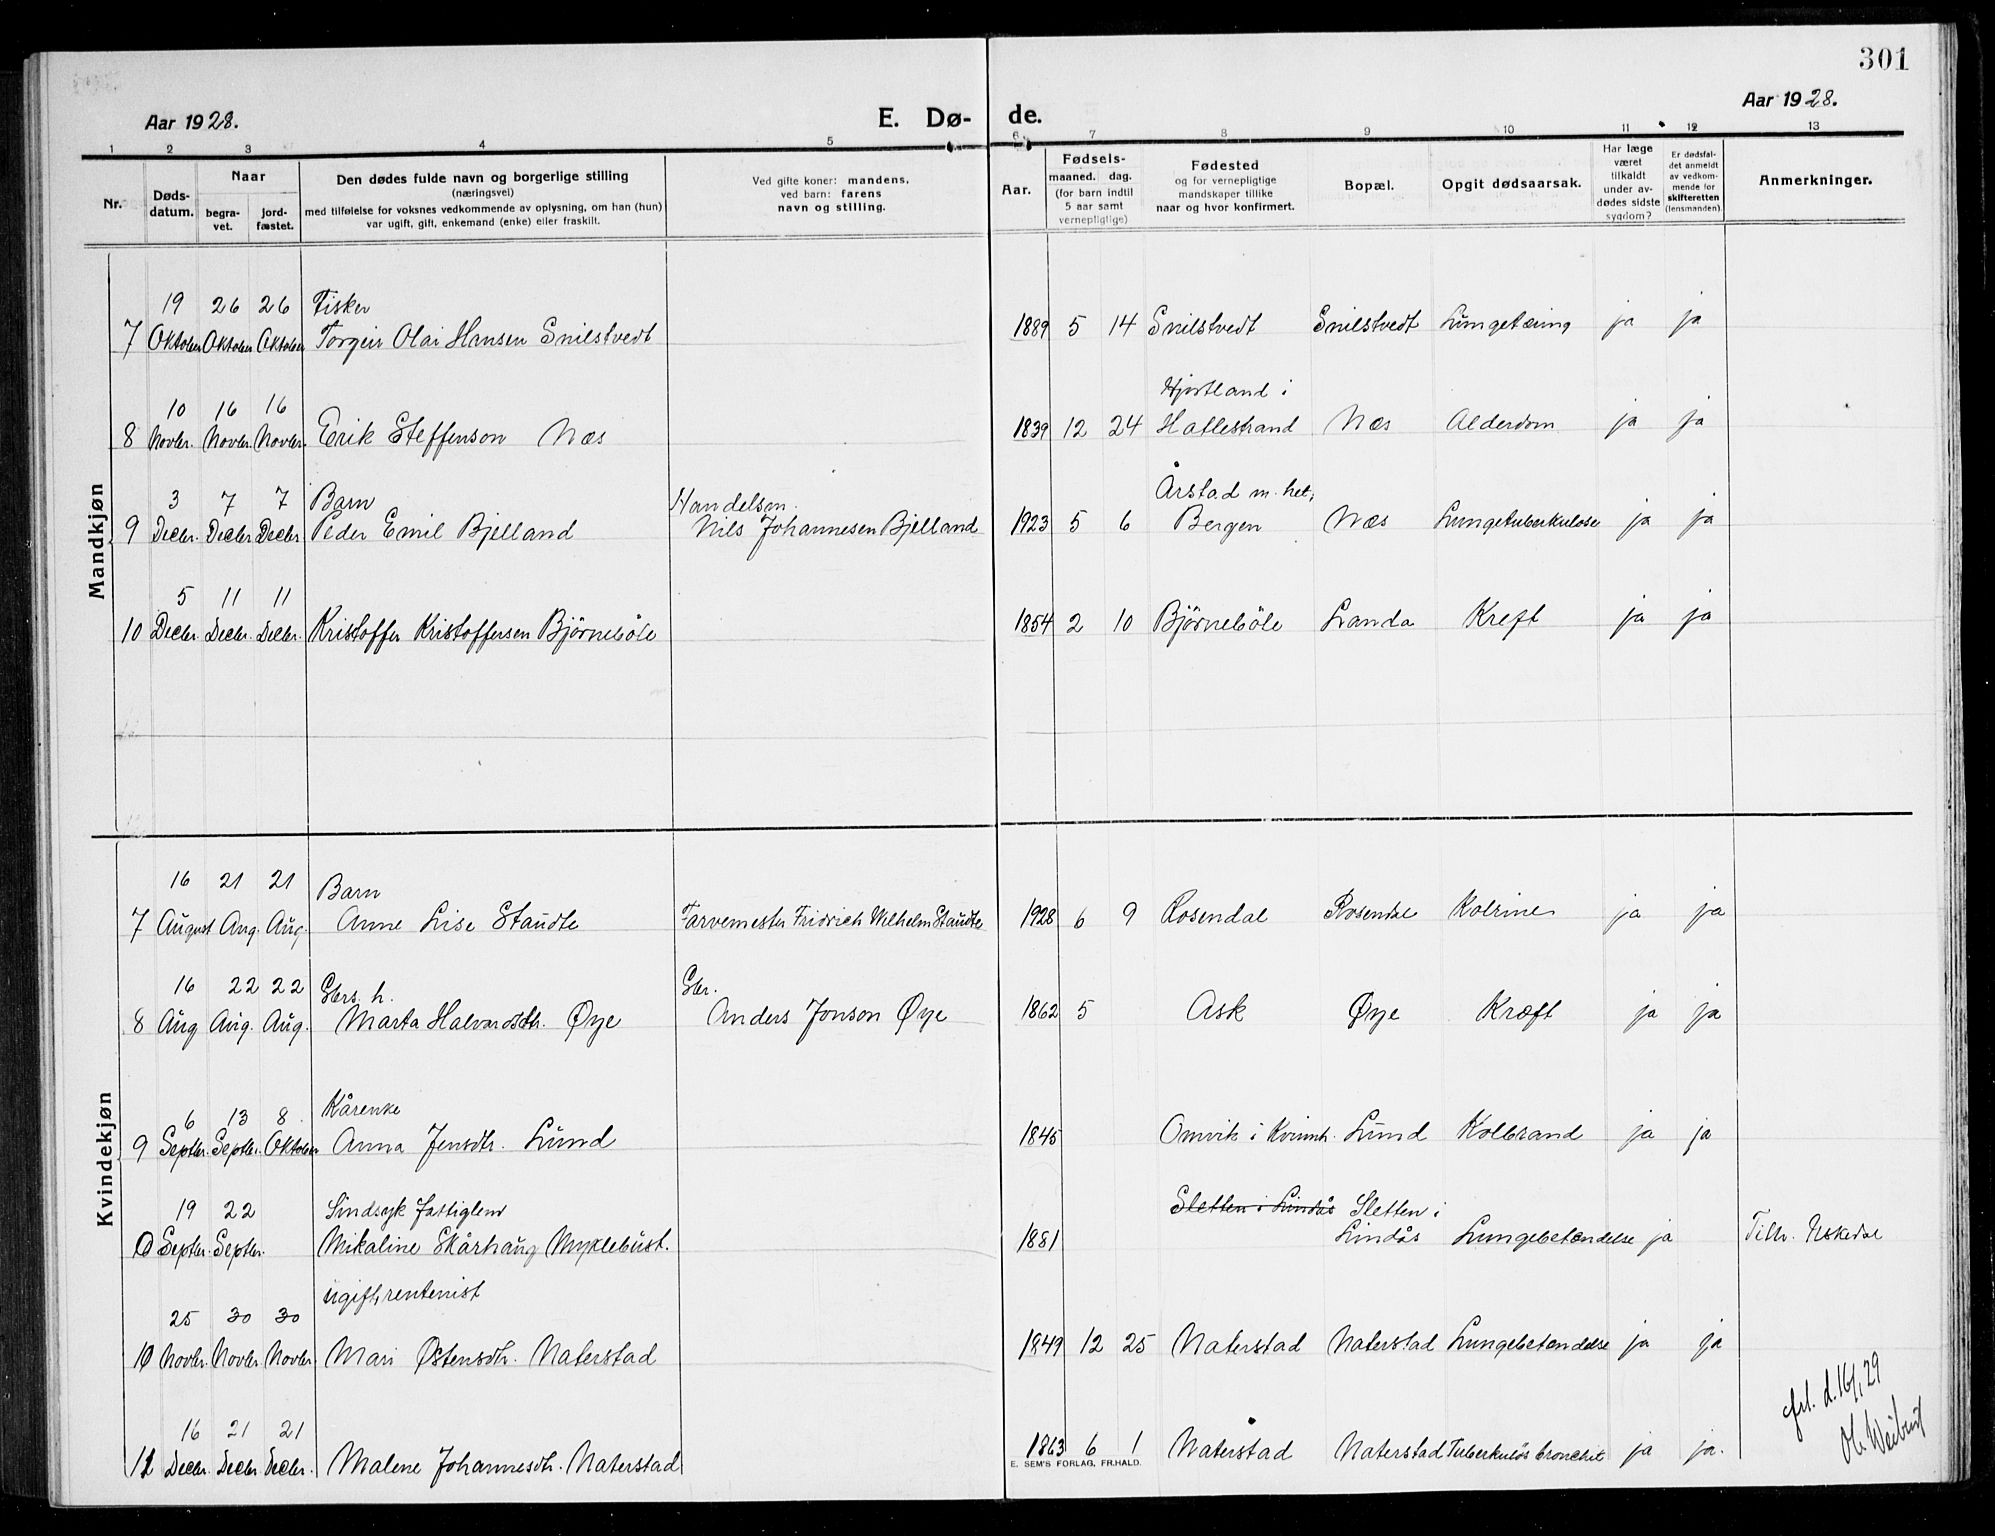 301
Aar 1928.
E. Dø- de.
Aar 1928.
1 2 3 4 5 6 7 8 9 10 11 12 13
Nr.
Døds-
datum.
Naar
begra-
vet.
jord-
fæstet.
Den dødes fulde navn og borgerlige stilling
(næringsvei)
med tilføielse for voksnes vedkommende av oplysning, om han (hun)
var ugift, gift, enkemand (enke) eller fraskilt.
Ved gifte koner: mandens,
ved barn: farens
navn og stilling.
Aar.
Fødsels-
maaned. dag.
(for barn indtil
5 aar samt
vernepligtige)
Fødested
og for vernepligtige
mandskaper tillike
naar og hvor konfirmert.
Bopæl.
Opgit dødsaarsak.
Har læge
været
tilkaldt
under av-
dødes sidste
sygdom?
Er dødsfal-
det anmeldt
av vedkom-
mende for
skifteretten
(lensmanden).
Anmerkninger.
Mandkjøn
19 26 26 Fisker
7 Oktober Oktober Oktober Torgeir Olai Hansen Snilstvedt 1889 5 14 Snilstvedt Snilstvedt Lungetæring ja ja
10 16 16 Hjortland i
8 Novbr. Novbr. Novbr. Erik Steffenson Næs 1839 12 24 Hatlestrand Næs Alderdom ja ja
3 7 7 Barn Handelsm. Årstad m. het,
9 Decbr. Decbr Decbr Peder Emil Bjelland Nils Johannesen Bjelland 1923 5 6 Bergen Næs Lungetuberkulose ja ja
5 11 11
10 Decbr. Decbr. Decbr. Kristoffer Kristoffersen Bjørnebøle 1854 2 10 Bjørnebøle Landa Kreft ja ja
Kvindekjøn
16 21 21 Barn
7 August Aug. Aug. Anne Lise Staudte Farvemester Fridrich Wilhelm Staudte 1928 6 9 Rosendal Rosendal Kolrine ja ja
16 22 22 Gbrs. h. Gbr.
8 Aug Aug. Aug. Marta Halvardsdtr. Øye Anders Jonson Øye 1862 5 Ask Øye Kræft ja ja
6 13 8 Kårenke
9 Septbr. Septbr. Oktober Anna Jensdtr. Lund 1845 Omvik i Kvinnh. Lund Kolbrand ja ja
19 22 Sindsyk fattiglem Sletten i Lindås Sletten i
0 Septbr. Septbr. Mikaline Skårhaug Myklebust. 1881 Lindås Lungebetændelse ja Tilh. Uskedal
ugift, rentenist
25 30 30
10 Novbr. Novbr. Novbr Mari Østensdtr. Naterstad 1849 12 25 Naterstad Naterstad Lungebetændelse ja ja
16 21 21
11 Decbr. Decbr Decbr. Malene Johannesdtr. Naterstad 1863 6 1 Naterstad Naterstad Tuberkuløs bronchit ja ja.
E. SEM'S FORLAG, FR.HALD.